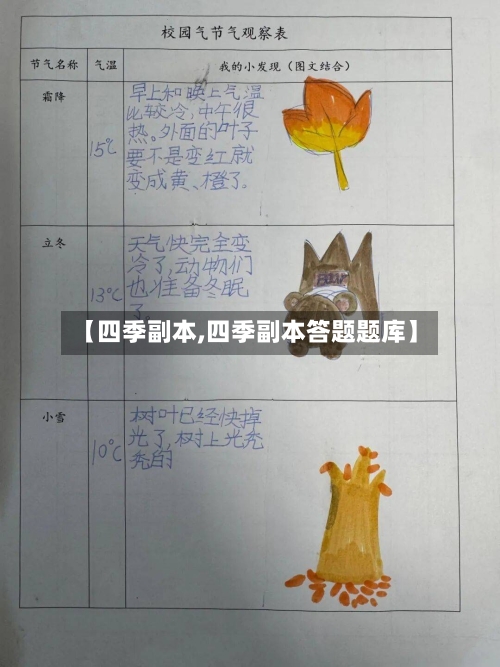 校园气节气观察表
节气名称 气温 我的小发现（图文结合）
霜降
15℃
早上和晚上气温
比较冷,中午很
热。外面的叶子
要不是变红就
变成黄、橙了。
立冬
13℃
天气快完全变
冷了,动物们
也准备冬眠
了。
【四季副本,四季副本答题题库】
小雪
10℃
树叶已经快掉
光了,树上光秃
秃的